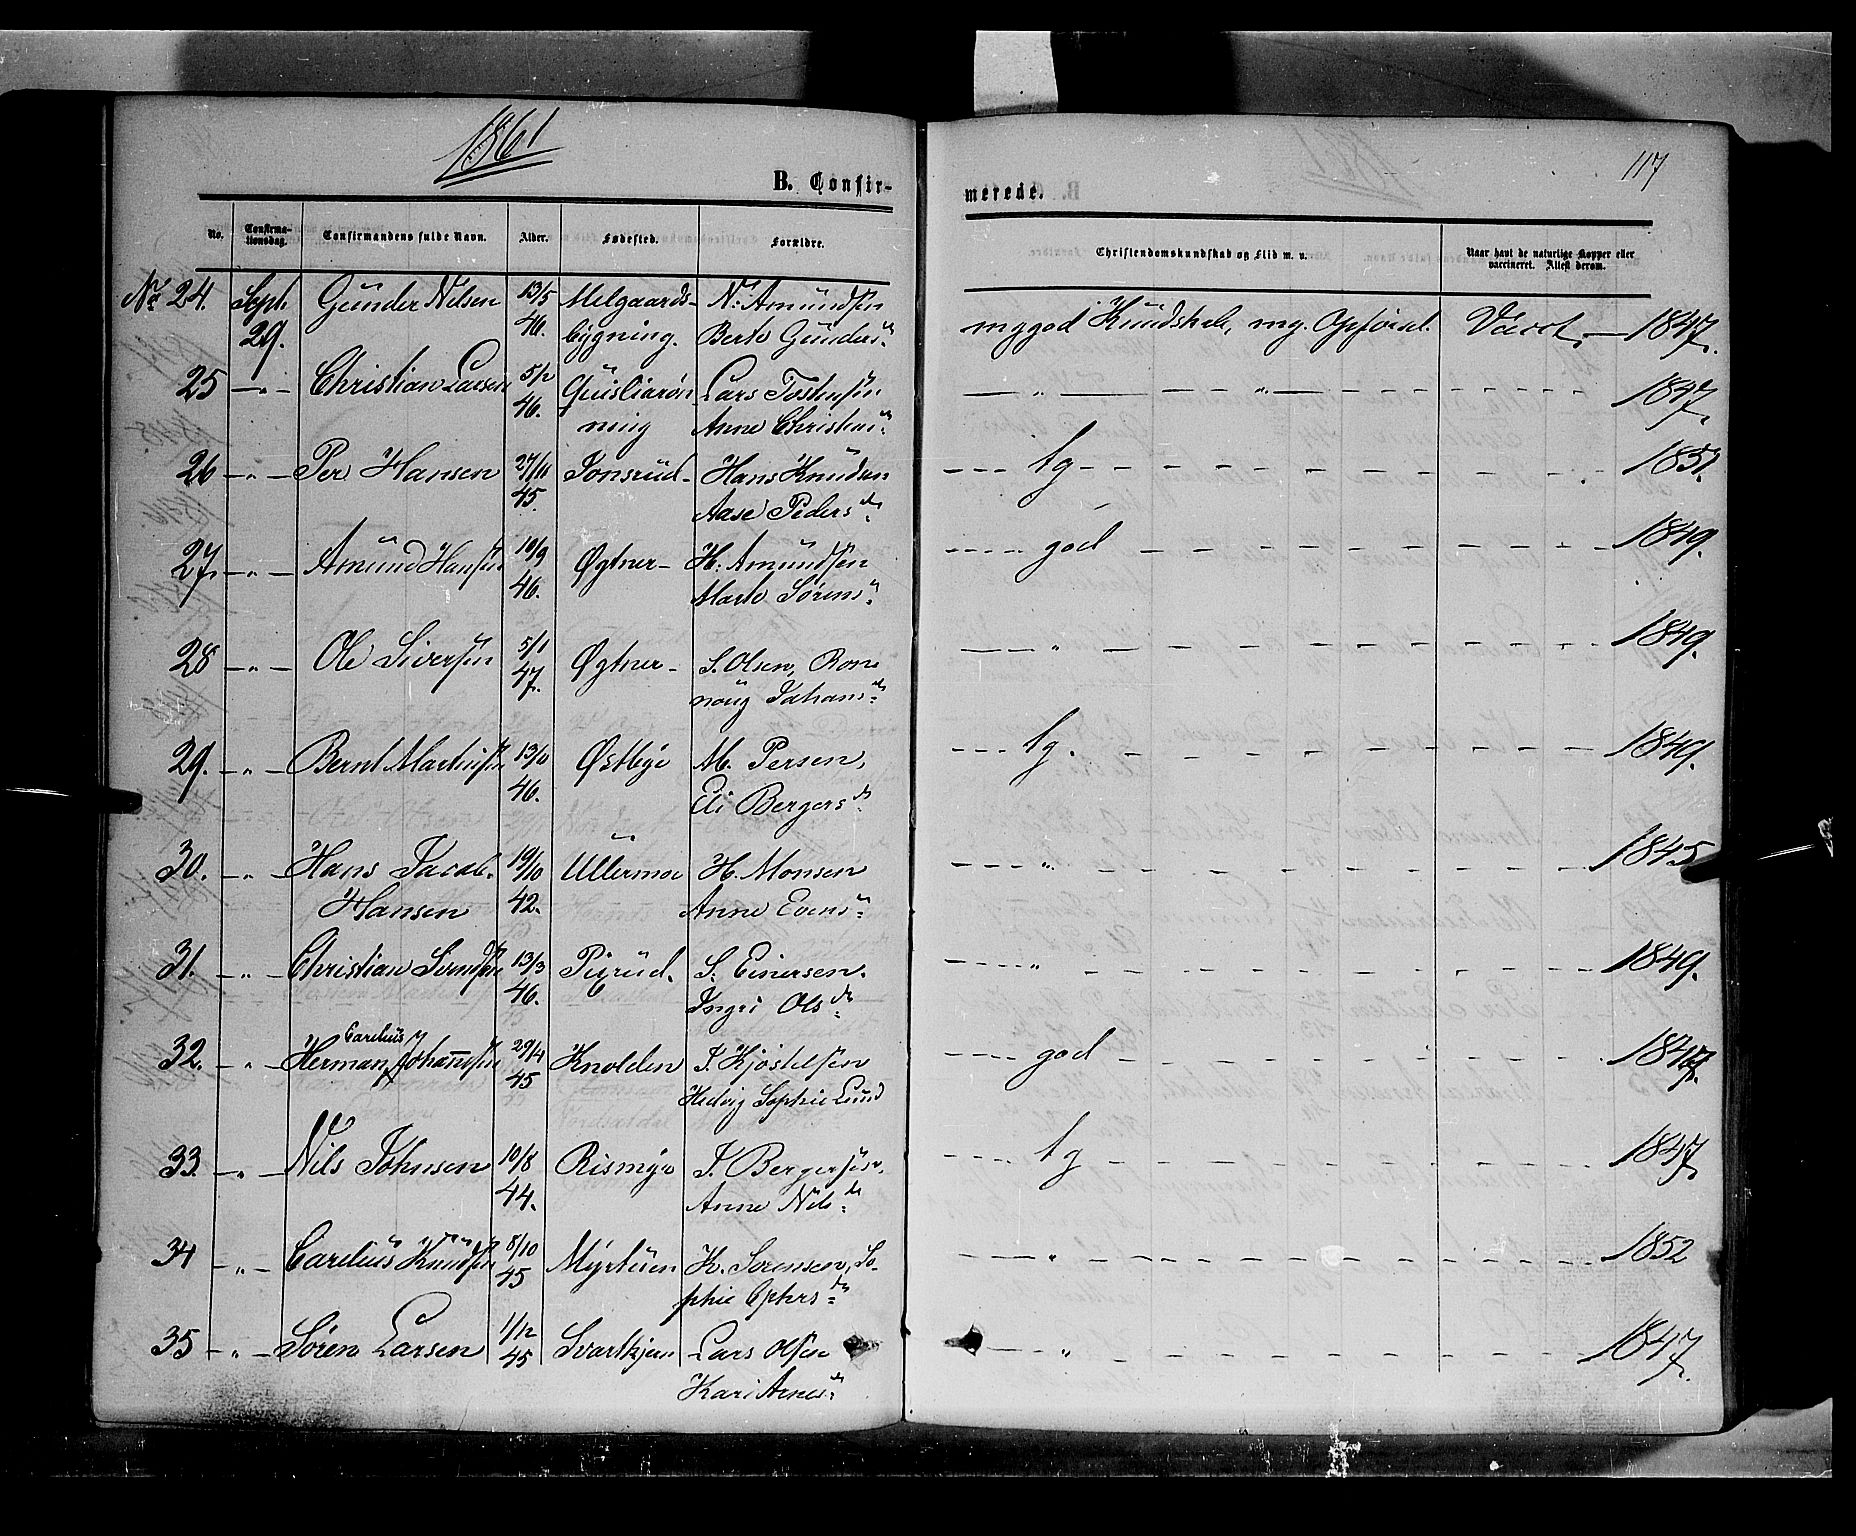 1861
117
B. Confir-
merede.
No.
Confirma-
tionsdag.
Confirmandens fulde Navn.
Alder.
Fødested.
Forældre.
Christendomskundskab og Flid m. v.
Naar havt de naturlige Kopper eller
vaccineret. Attest derom.
No 24. Sept. Gunder Nilsen 13/5 Melgaards- N. Amundsen
29. 46. bygning. Berte Gunders
mggod Kundskab, mg. Opførsel. Vacct. — 1847.
25 — " — Christian Larsen 5/2 Lars Tostensen — " — " — 1847.
46. ning Anne
26 - " - Per Hansen 27/11 Tonsrud - Hans Knudsen - - - tg - - - 1851.
45. Aase Peders d:
27. - " - Amund Hansen 10/9 Øgtner - H. Amundsen - - - god - - - 1849.
46. Marte Sørens
28 - " - Ole Siversen 5/1 Øgtner - S. Olsen, Ron — " - - - 1849.
47. noug Johans d:
29. - " - Bernt Martinsen Østbye M. Persen, - - - tg. - - - 1849.
46. Eli Bergers d:
30. - " - Hans Jacob 19/10 Ullermoe H. Monsen - - - " - - - 1845
Hansen 42. Anne Evens
31. - " - Christian Svendsen 13/3 Pixrud. S. Einersen. - - - " - - - 1849.
46. Ingri Ols d:
Carelius
32. - " - Herman Johannsen 29/4 Knolden J. Kjøstelsen - - - god - - - 1847.
45 Hedvig Sophie Lund
33. - " - Nils Johnsen 10/8 Rismyr J. Bergersen, - - - tg - - - 1847.
44. Anne Nils d:
34 - " - Carelius Knudsen 8/10 Myrtuen K. Sørensen, So- — " - - - 1852
45 phie d:
35 - " - Søren Larsen 1/12 Svartkjern Lars Olsen — " - - - 1847.
45 Kari Arnes d: